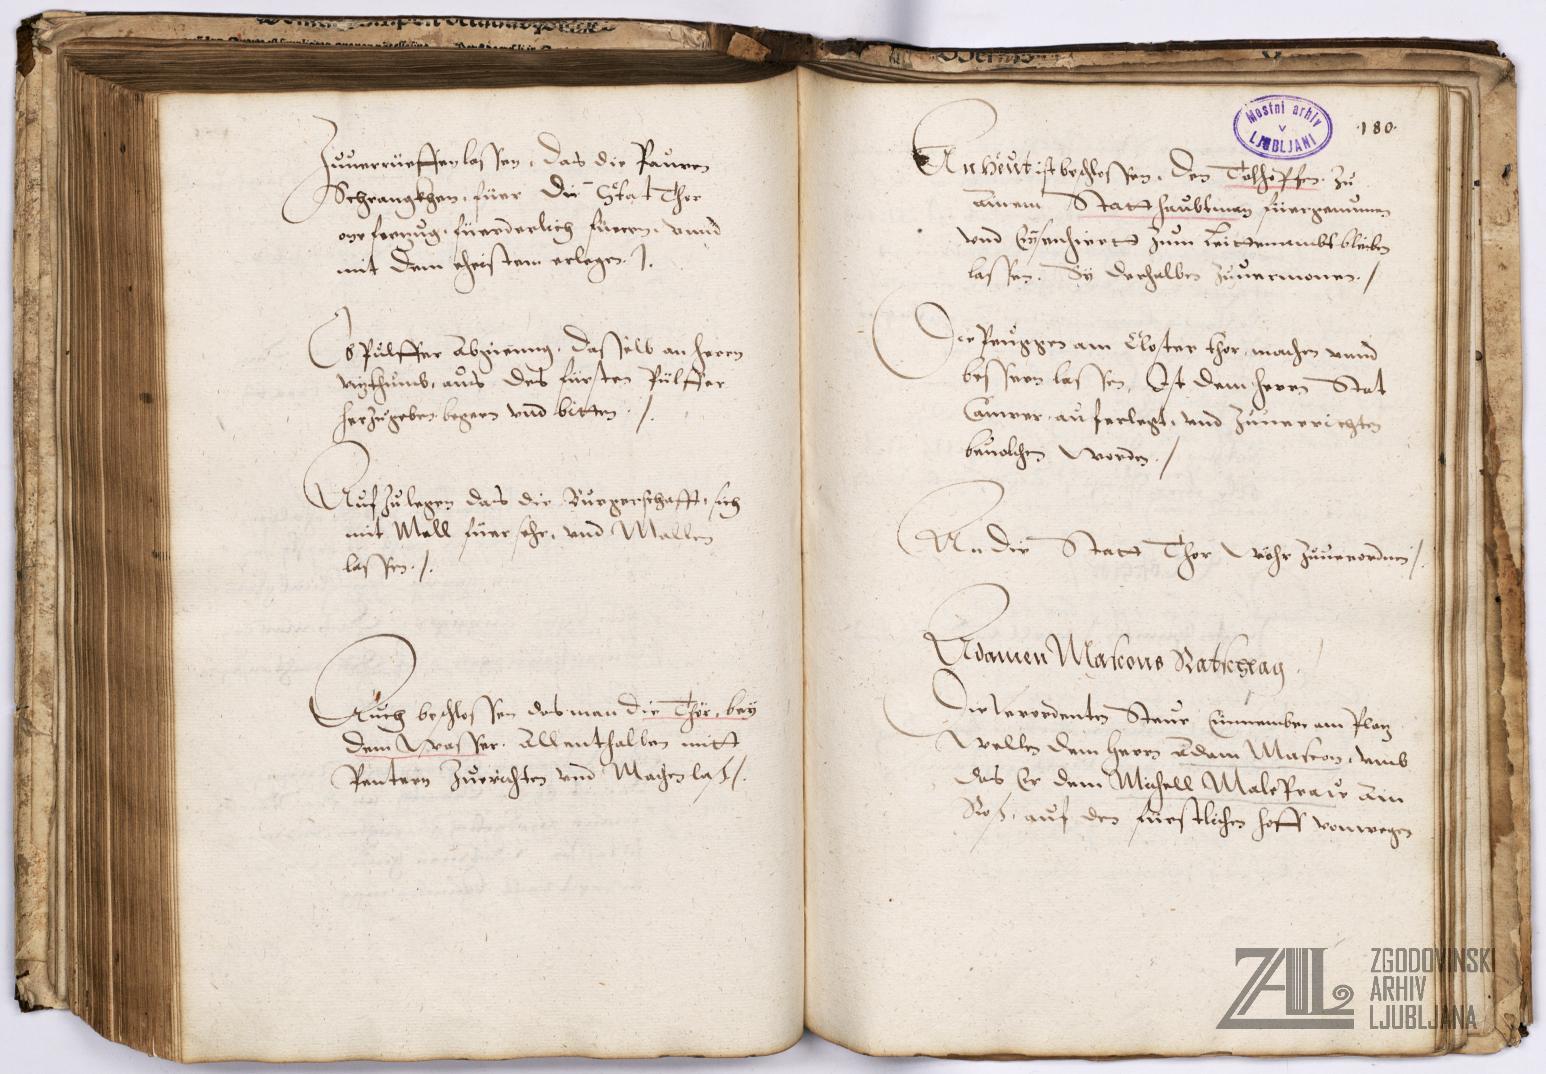 Zuuerrüeffen lassen, das die Pauren
Schrangkhen, füer die Stat Thor
one ferzug, füerderlich füeren, vnnd
mit dem eheistem erlegen ./.
Ob Pulffer abgienng, dasselb an herrn
vizthumb, aus des fürsten Pulffer
herzugeben begern vnd bitten ./
Aufzulegen das die Burgerschafft, sich
mit Mell füersehe, vnd Mallen
lassen ./.
Auch beschlossen das man die Thör, bey
dem Wasser allenthalben mitt
Pentern Zuerichten vnd Machen laß ./.
Mostni arhiv
v
LJUBLJANI
·180·
An heut ist beschlossen, den zu
ainem Statthaubtman füergenumen
vnd zum bleiben
lassen. Sy derhalben zuuermonen ./
Die Pruggen am Closter thor, machen vnnd
bessern lassen, Ist dem herrn Stat
Camrer auferlegt, vnd Zuuerrichten
beuolchen worden ./
An die Statt Thor Wöhr Zuuerordnen ./
Adamen Mascons Ratschlag
Die verordenten Steur Einnember am Plaz
Wellen dem herrn Adam Mascon, vmb
das Er dem Michell ain
Roß, auf den fürstlichen hoff vonwegen
ZAL
ZGODOVINSKI
ARHIV
LJUBLJANA